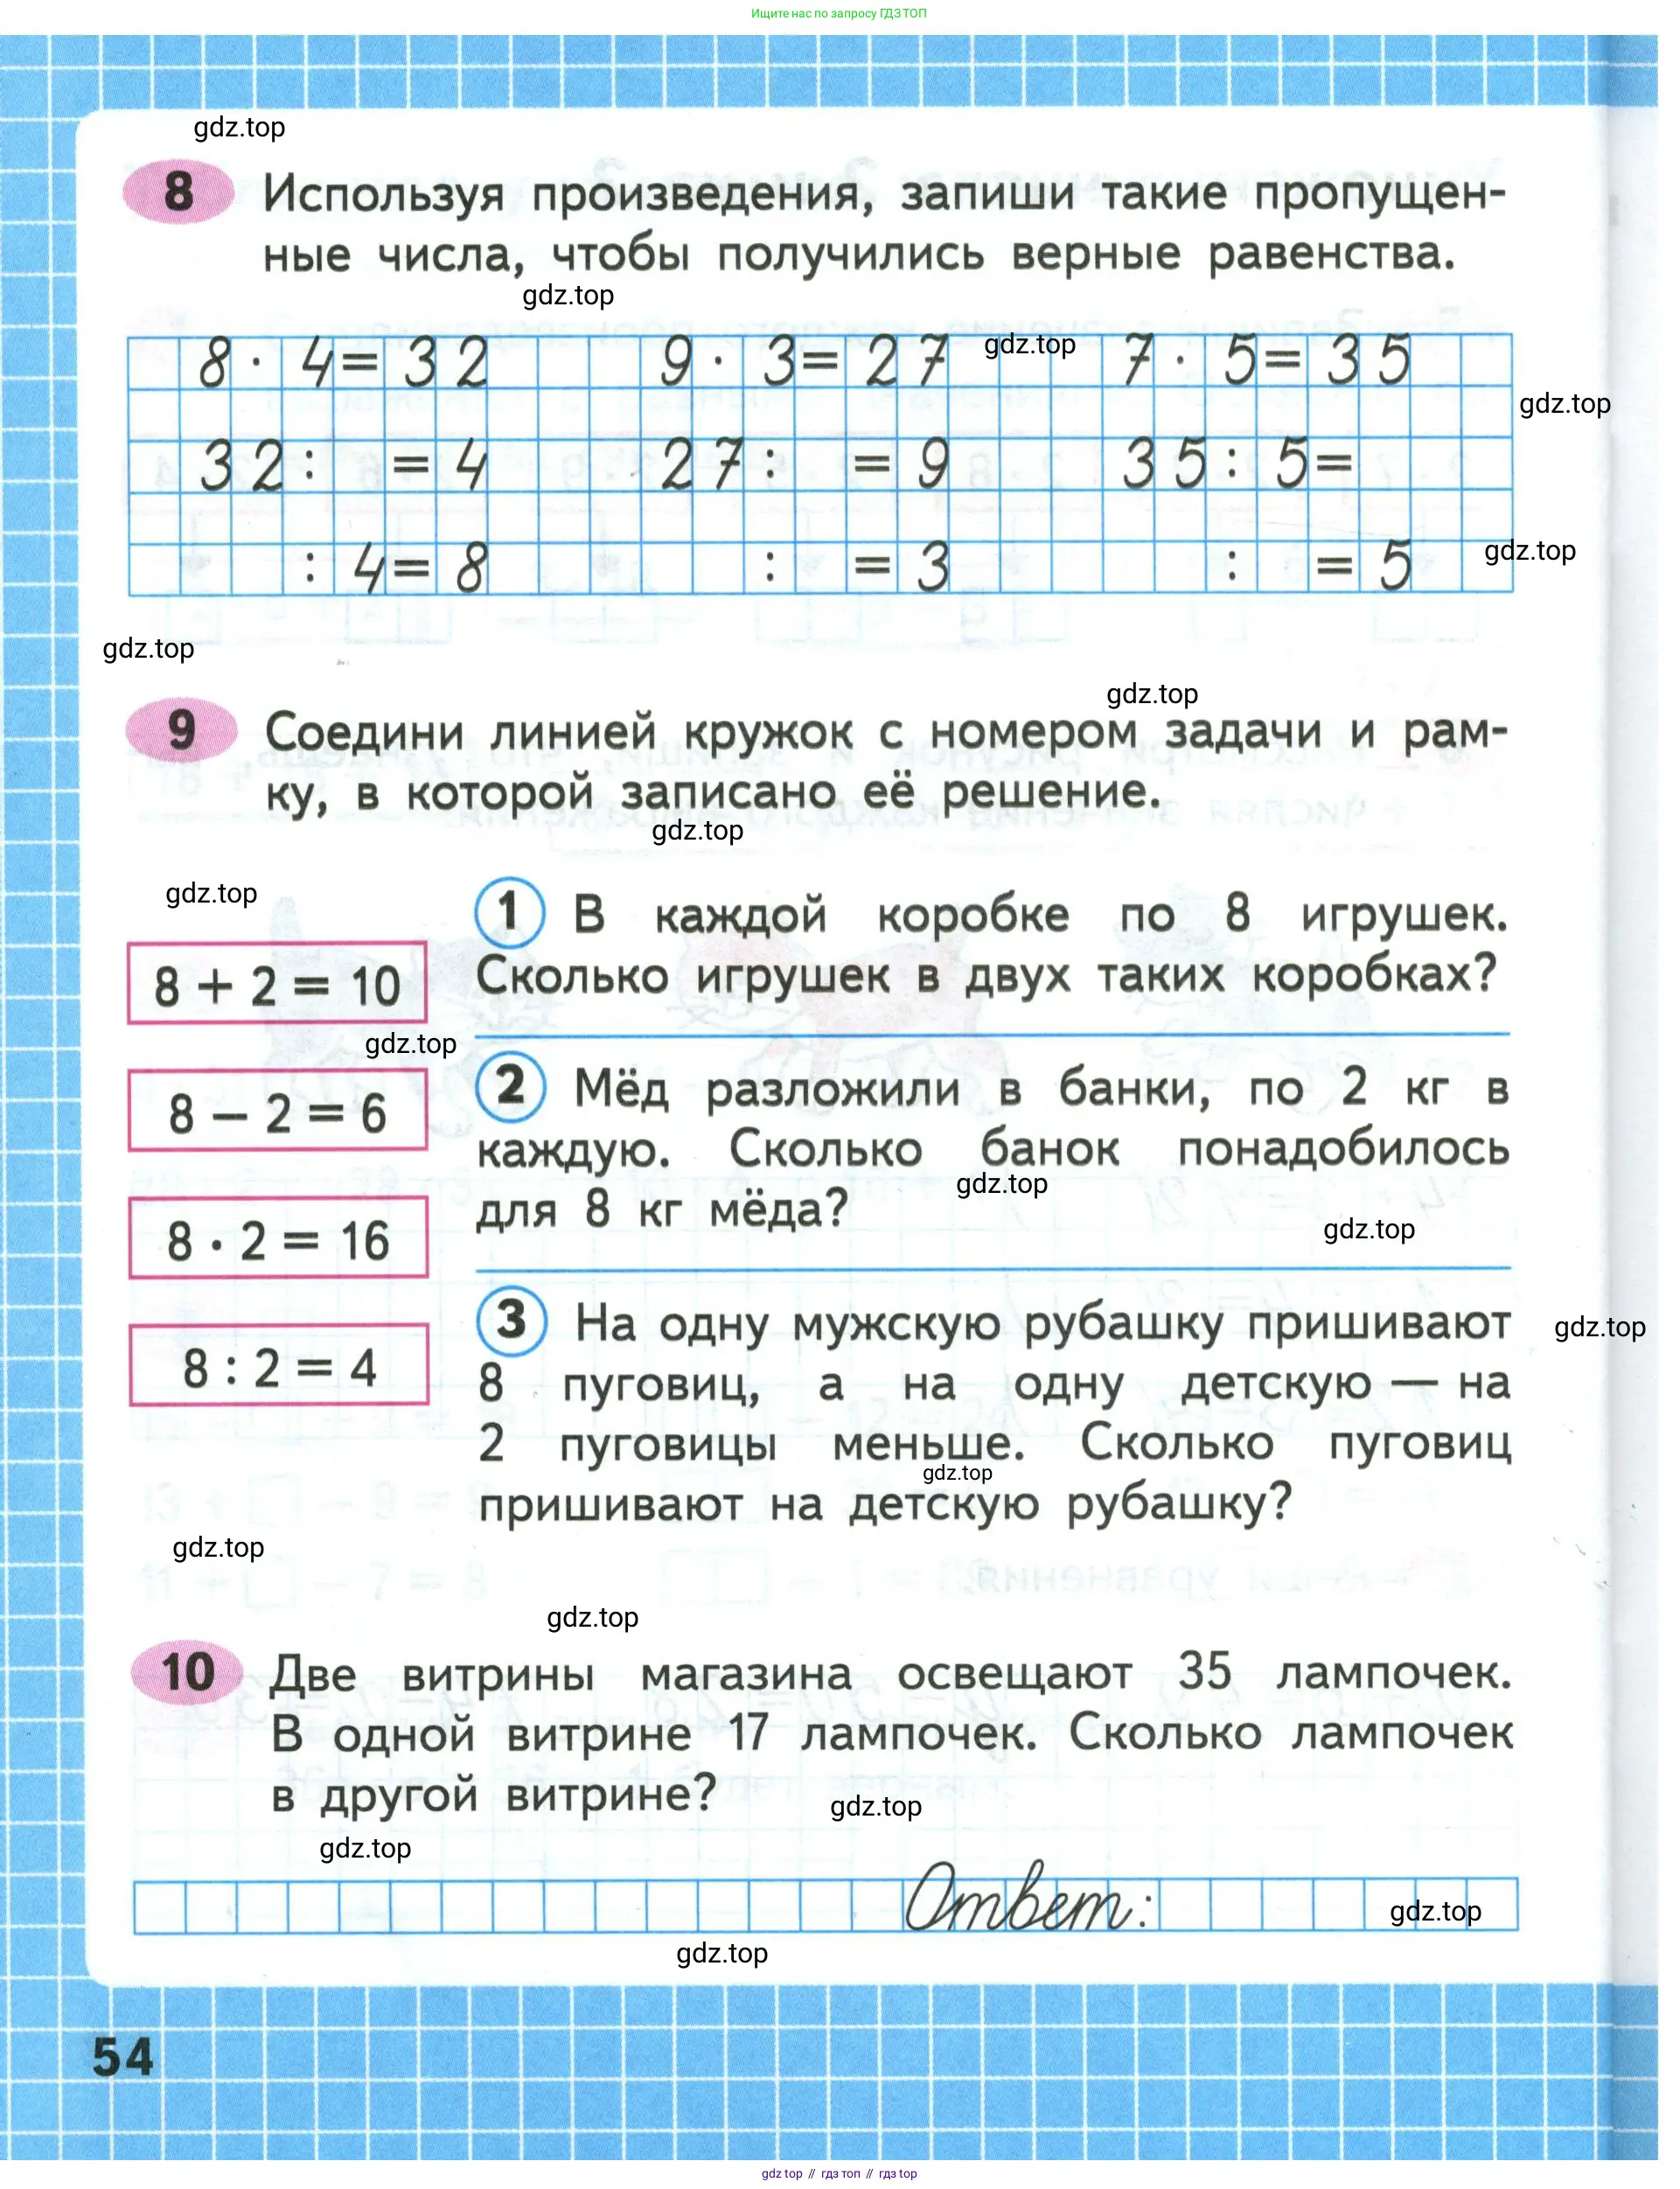 Ищите нас по запросу ГДЗ ТОП
gdz.top
8 Используя произведения, запиши такие пропущен-
ные числа, чтобы получились верные равенства.
gdz.top
8 · 4 = 32 9 · 3 = 27 gdz.top 7 · 5 = 35
gdz.top
32 : = 4 27 : = 9 35 : 5 =
: 4 = 8 : = 3 : = 5 gdz.top
gdz.top
gdz.top
9 Соедини линией кружок с номером задачи и рам-
ку, в которой записано её решение.
gdz.top
gdz.top
8 + 2 = 10
gdz.top
8 − 2 = 6
8 · 2 = 16
8 : 2 = 4
1 В каждой коробке по 8 игрушек.
Сколько игрушек в двух таких коробках?
2 Мёд разложили в банки, по 2 кг в
каждую. Сколько банок понадобилось
gdz.top
для 8 кг мёда?
gdz.top
3 На одну мужскую рубашку пришивают
gdz.top
8 пуговиц, а на одну детскую — на
2 пуговицы меньше. Сколько пуговиц
gdz.top
пришивают на детскую рубашку?
gdz.top
gdz.top
10 Две витрины магазина освещают 35 лампочек.
В одной витрине 17 лампочек. Сколько лампочек
в другой витрине?
gdz.top
gdz.top
Ответ: gdz.top
gdz.top
54
gdz top // гдз топ // гдз top